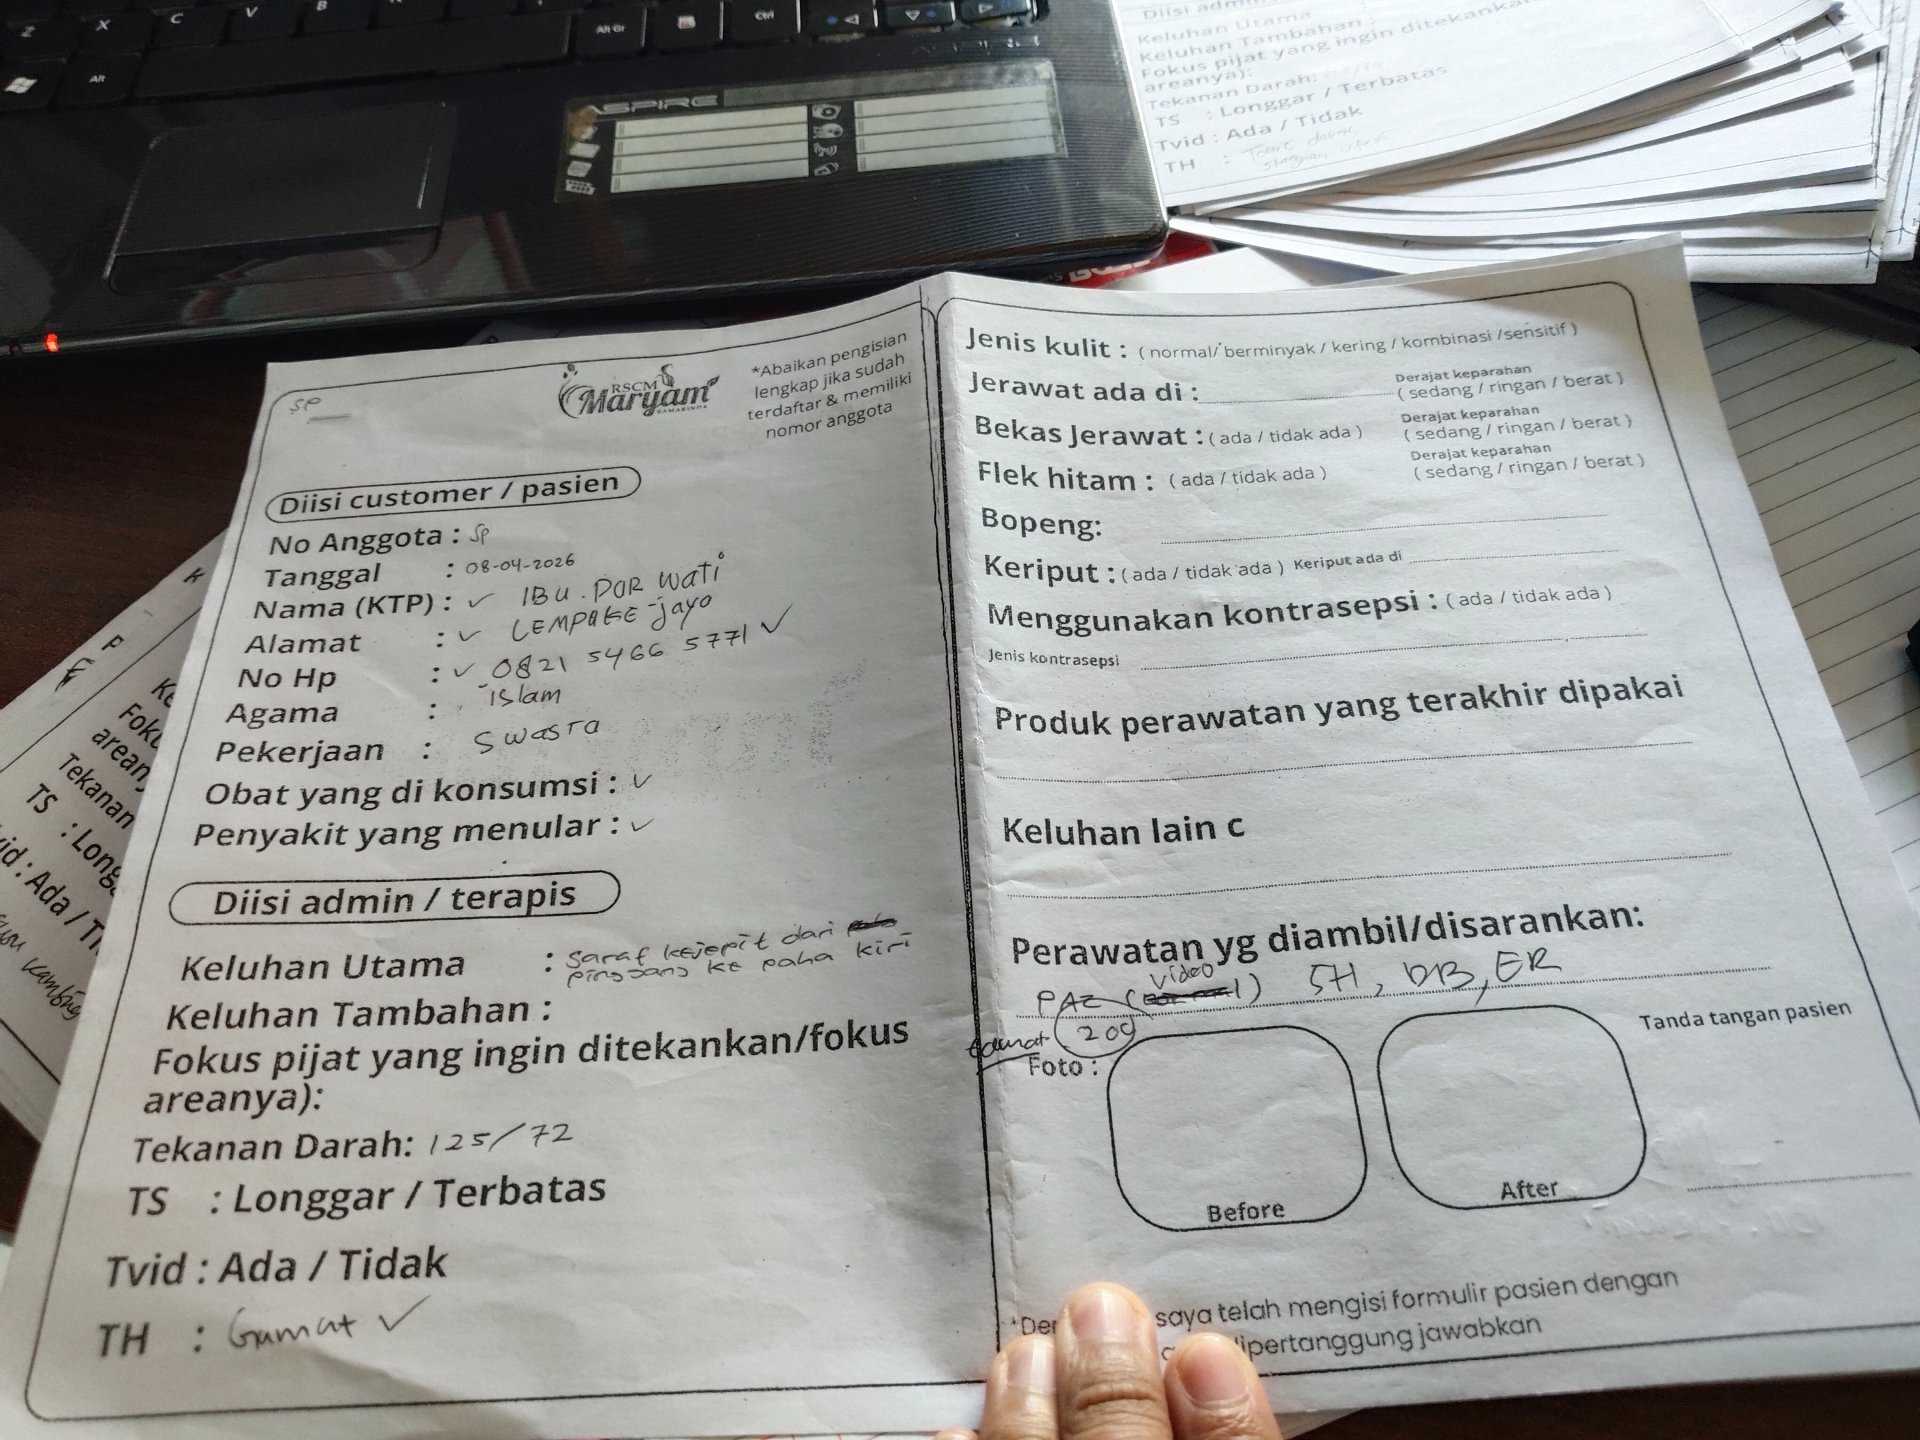 Z X C V B Alt Gr Ctrl
Alt
ASPIRE
Keluhan Utama
Keluhan Tambahan :
Fokus pijat yang ingin ditekankan
areanya):
Tekanan Darah:
TS : Longgar / Terbatas
Tvid : Ada / Tidak
TH :
SP
RSCM
Maryam
SAMARINDA
*Abaikan pengisian
lengkap jika sudah
terdaftar & memiliki
nomor anggota
Diisi customer / pasien
No Anggota : SP
Tanggal : 08-04-2026
Nama (KTP) : ✓ IBU. POR WATi
Alamat : ✓ LEMPAKE-jayo
No Hp : ✓ 0821 5466 5771 ✓
Agama : islam
Pekerjaan : SWASTA
Obat yang di konsumsi : ✓
Penyakit yang menular : ✓
Diisi admin / terapis
Keluhan Utama : Saraf kejepit dari
pinggang ke paha kiri
Keluhan Tambahan :
Fokus pijat yang ingin ditekankan/fokus
areanya):
Tekanan Darah: 125/72
TS : Longgar / Terbatas
Tvid : Ada / Tidak
TH : Gamat ✓
Jenis kulit : ( normal/ berminyak / kering / kombinasi /sensitif )
Jerawat ada di : Derajat keparahan
( sedang / ringan / berat )
Bekas Jerawat : ( ada / tidak ada ) Derajat keparahan
( sedang / ringan / berat )
Flek hitam : ( ada / tidak ada ) Derajat keparahan
( sedang / ringan / berat )
Bopeng:
Keriput : ( ada / tidak ada ) Keriput ada di
Menggunakan kontrasepsi : ( ada / tidak ada )
Jenis kontrasepsi
Produk perawatan yang terakhir dipakai
Keluhan lain c
Perawatan yg diambil/disarankan:
PAZ (video) SH, DB, ER
Gamat 200
Foto :
Before
After
Tanda tangan pasien
saya telah mengisi formulir pasien dengan
dipertanggung jawabkan
Foku
arean
Tekanan
TS : Long
id : Ada / Ti